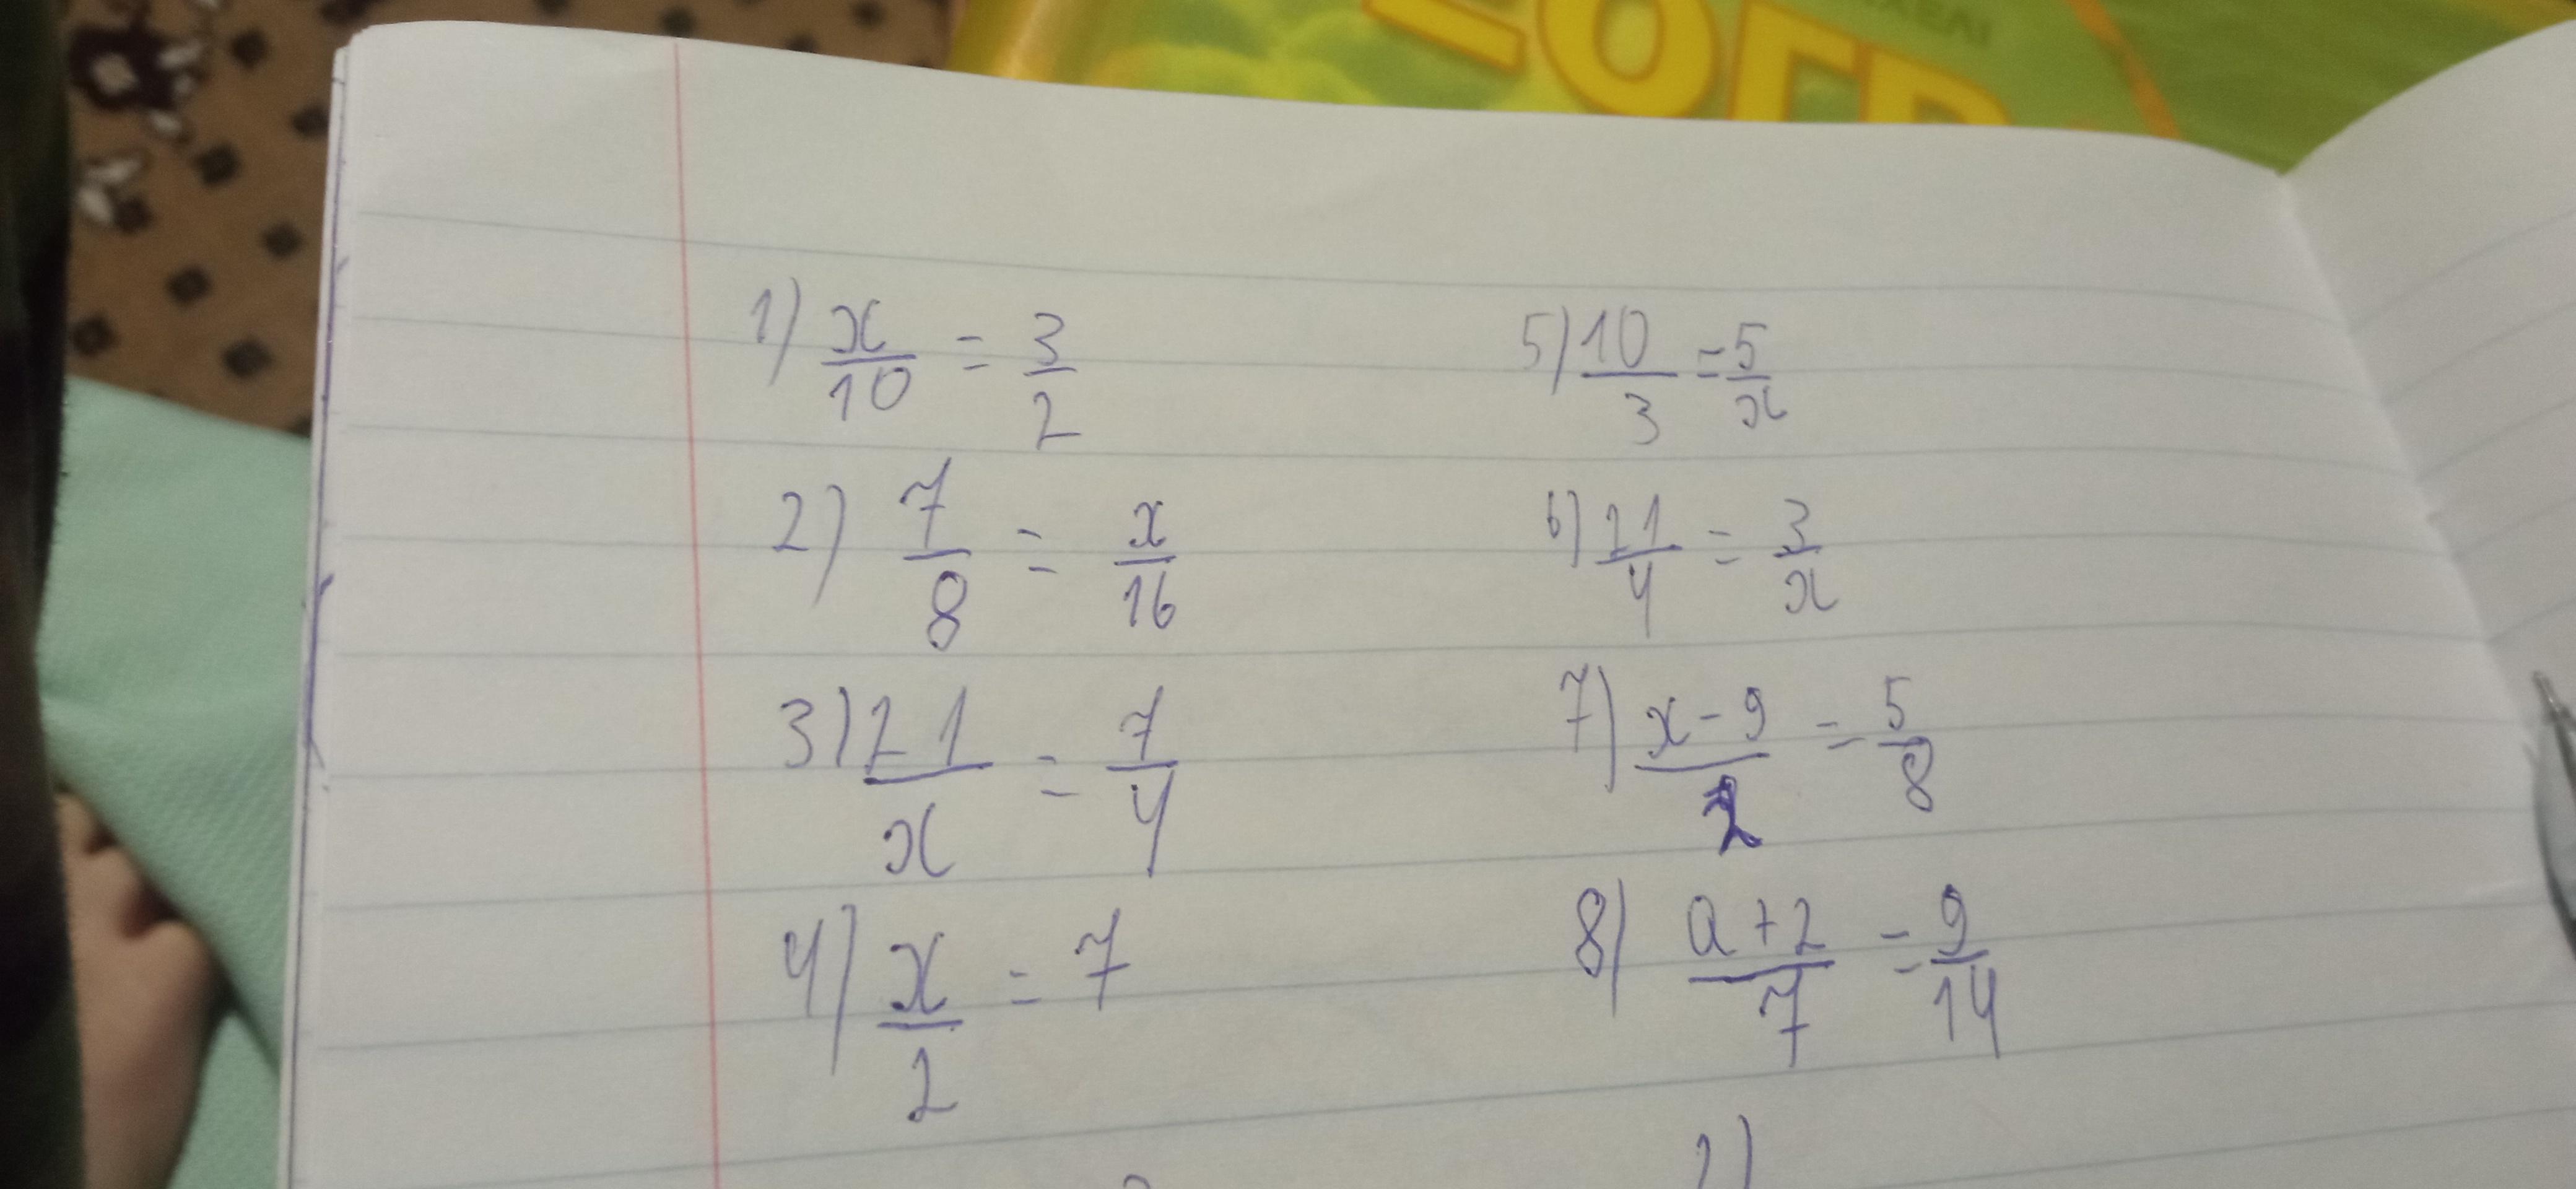 1) x/10 = 3/2
2) 7/8 = x/16
3) 21/x = 7/4
4) x/2 = 7
5) 10/3 = 5/x
6) 21/4 = 3/x
7) x-9/2 = 5/8
8) a+2/7 = 9/14